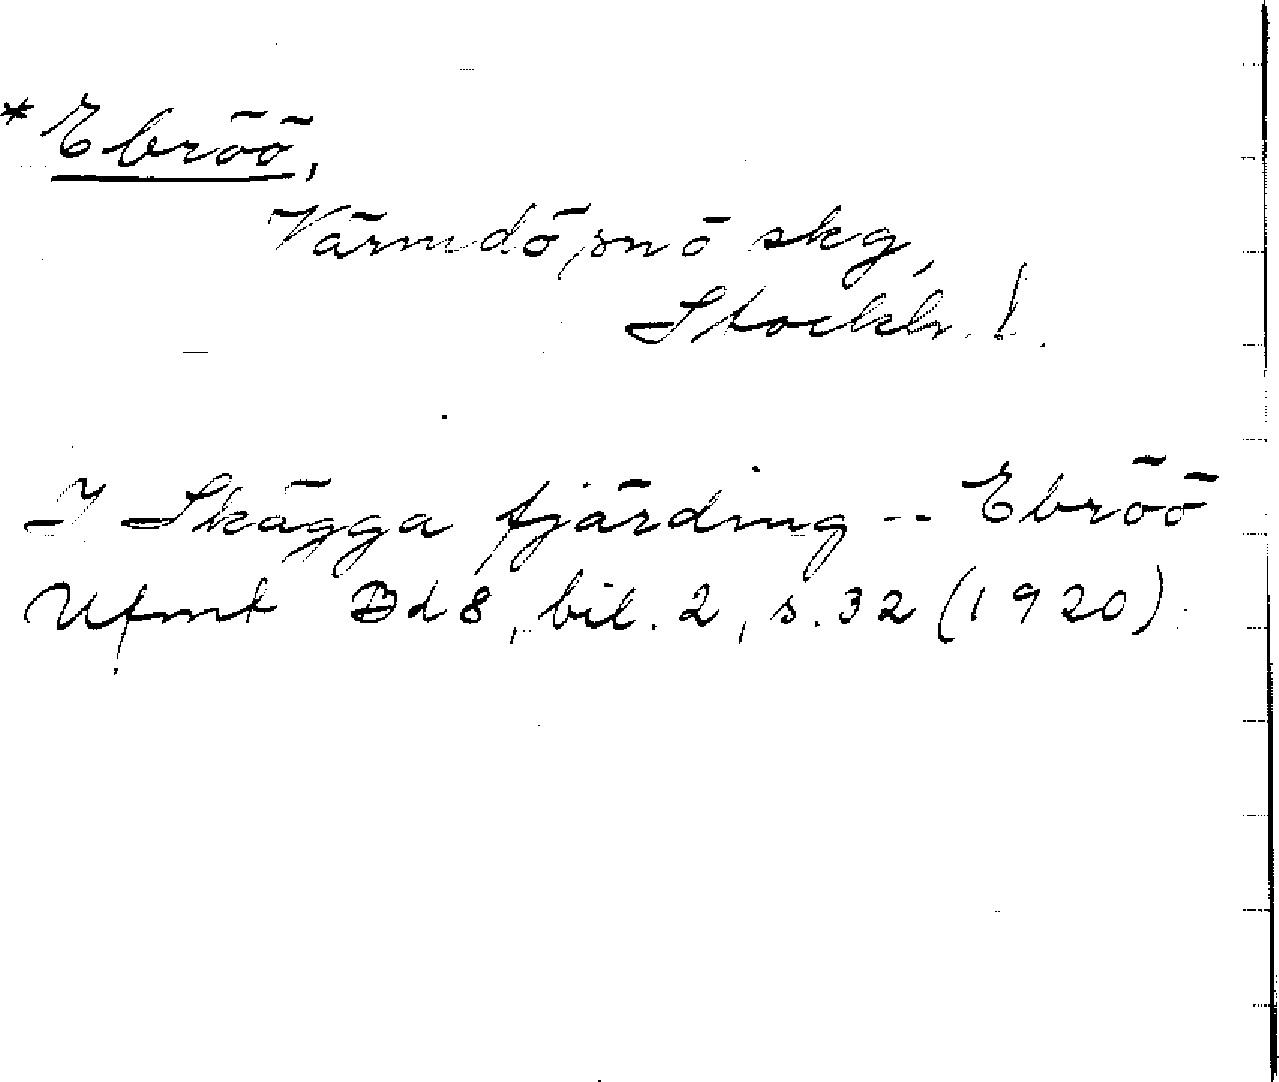 *Ebröö,
Värmdö, snö skg,
Stockh. l.
I Skägga fjärding -- Ebröö
Ufmt Bd 8, bil. 2, s. 32 (1920).